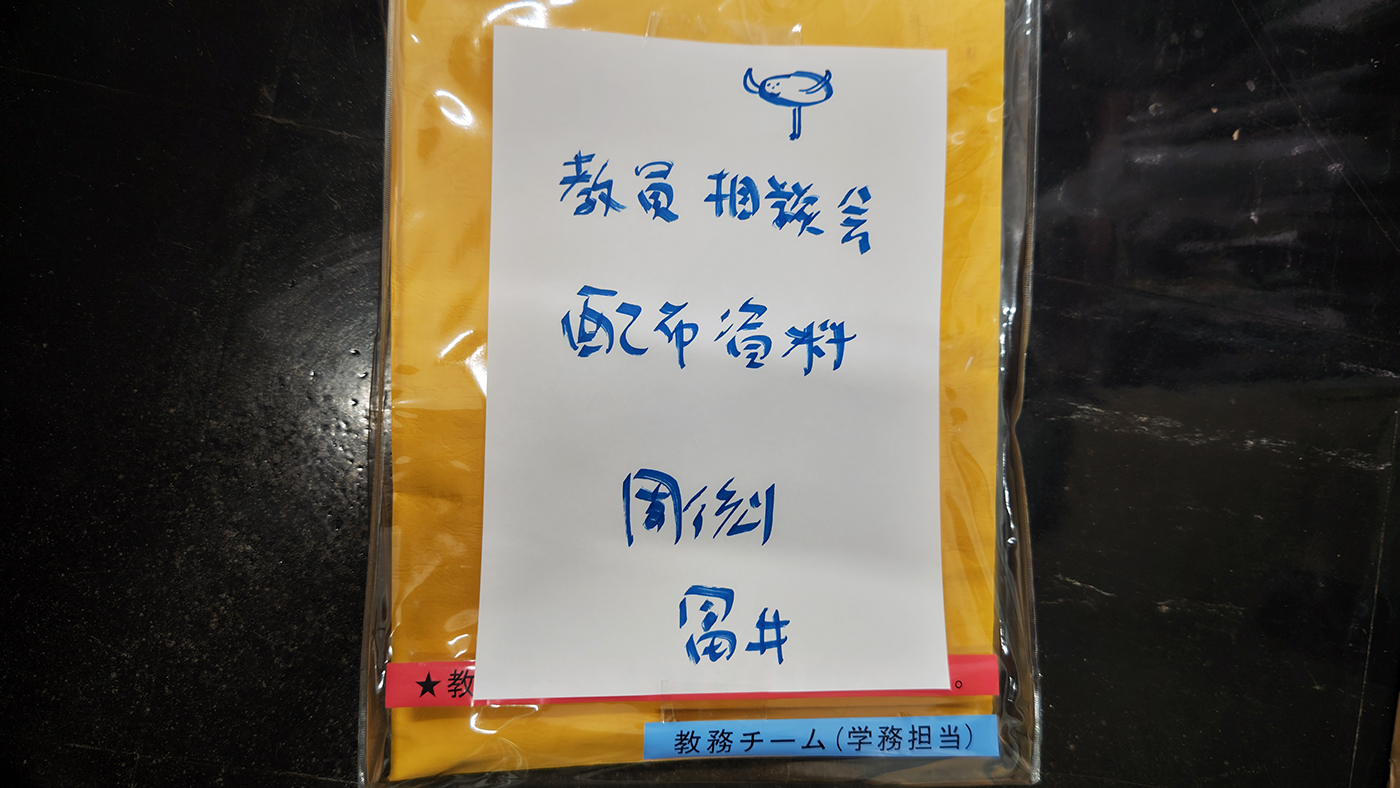 教員 相談会
配布資料
冨井
★教
。
教務チーム(学務担当)